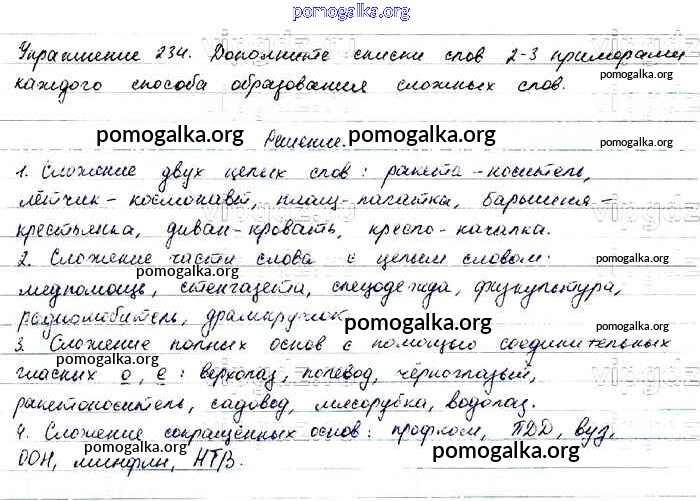 pomogalka.org
Упражнение 234. Дополните списки слов 2-3 примерами
каждого способа образования сложных слов.
pomogalka.org
pomogalka.org Решение. pomogalka.org
pomogalka.org
1. Сложение двух целых слов: ракета-носитель,
лётчик-космонавт, плащ-палатка, барышня-
pomogalka.org
крестьянка, диван-кровать, кресло-качалка.
2. Сложение части слова с целым словом:
pomogalka.org
медпомощь, стенгазета, спецодежда, физкультура,
pomogalka.org
радиолюбитель, драмкружок.
pomogalka.org
3. Сложение полных основ с помощью соединительных
pomogalka.org
гласных о, е: верхолаз, полевод, черноглазый,
ракетоноситель, садовод, мясорубка, водолаз.
4. Сложение сокращённых основ: профком, ПДД, вуз,
pomogalka.org
ООН, минфин, НТВ.
pomogalka.org